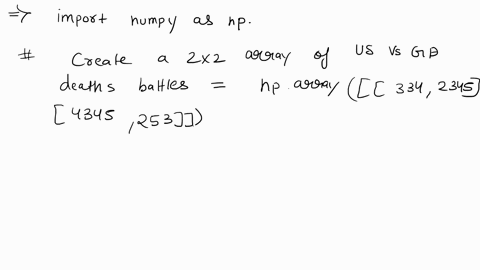 => import numpy as np.
# Create a 2x2 array of US vs GB
deaths battles = np.array([[334, 2345]
[4345, 253]])